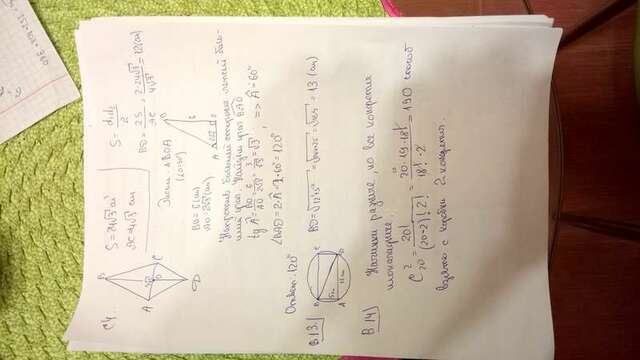 C4.
B
A
C
D
O
S = 24√3 см²
AC = 4√3 см
S = d₁d₂/2
BD = 2S/AC = 2·24√3/4√3 = 12 (см)
Δ BOA
(∠O=90°)
BO = 6 (см)
AO = 2√3 (см)
6
A
2√3
O
Напротив большей стороны лежит боль-
ший угол. Найдём угол BAO
tg Â = BO/AO = 6/2√3 = 3/√3 = √3, => Â = 60°
∠BAD = 2·Â = 2·60° = 120°
Ответ: 120°
B.13.
B
C
A
D
5см
12 см
BD = √12²+5² = √144+25 = √169 = 13 (см)
B.14)
Начинки разные, но все конфеты
шоколадные.
C²₂₀ = 20!/(20-2)!2! = 20·19·18!/18!·2 = 190 способ
взять с коробки 2 конфеты.